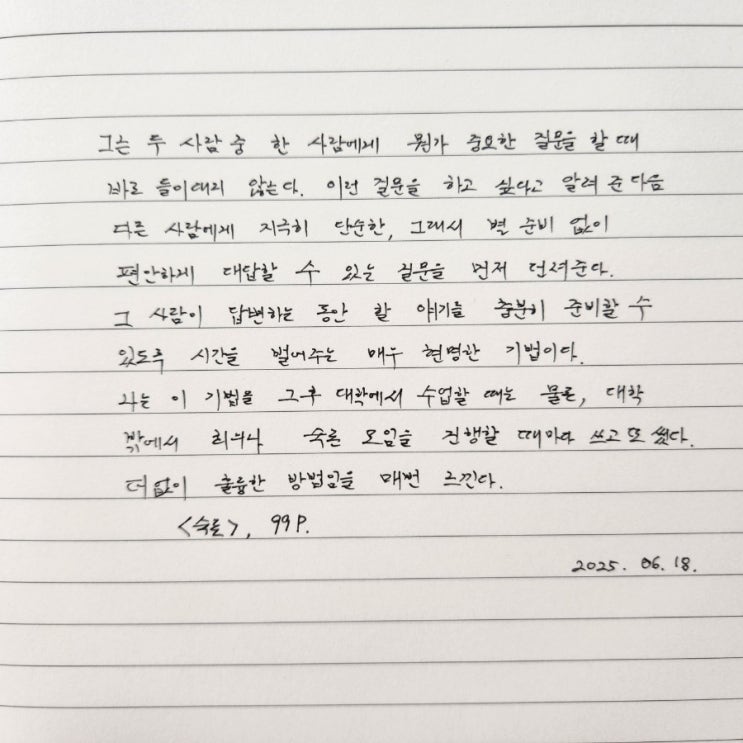 그는 두 사람 중 한 사람에게 뭔가 중요한 질문을 할 때
바로 들이대지 않는다. 이런 질문을 하고 싶다고 알려 준 다음
다른 사람에게 지극히 단순한, 그래서 별 준비 없이
편안하게 대답할 수 있는 질문을 먼저 던져준다.
그 사람이 답변하는 동안 할 얘기를 충분히 준비할 수
있도록 시간을 벌어주는 매우 현명한 기법이다.
나는 이 기법을 그후 대학에서 수업할 때는 물론, 대학
밖에서 회의나 숙론 모임을 진행할 때마다 쓰고 또 썼다.
더없이 훌륭한 방법임을 매번 느낀다.
<숙론>, 99P.
2025. 06. 18.